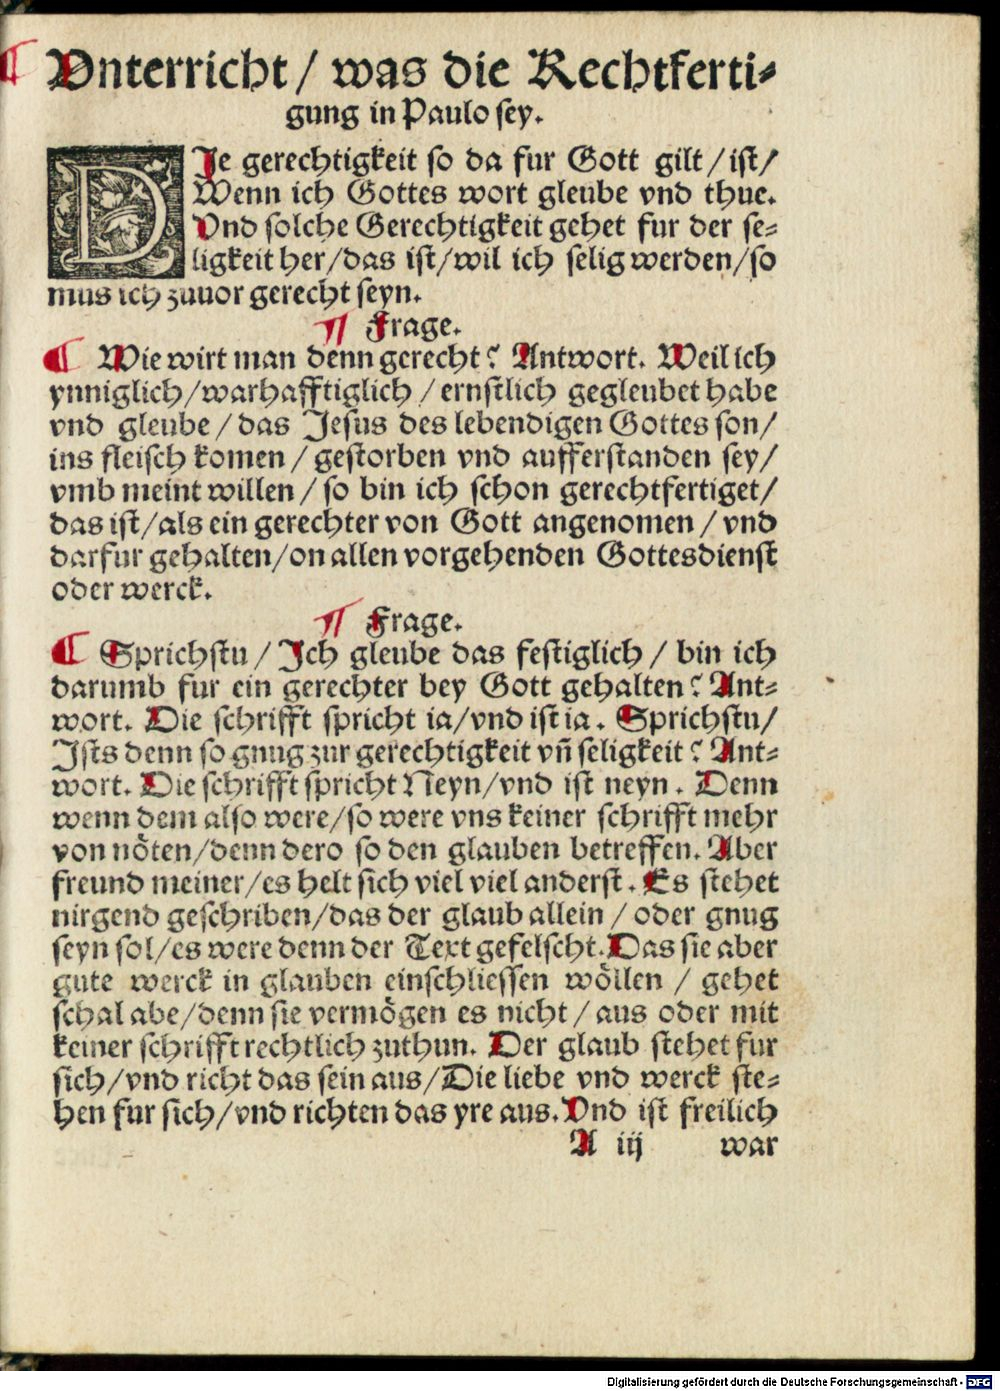 ¶ Vnterricht / was die Rechtferti⸗
gung in Paulo sey.
DIe gerechtigkeit so da fur Gott gilt / ist /
Wenn ich Gottes wort gleube vnd thue.
Vnd solche Gerechtigkeit gehet fur der se⸗
ligkeit her / das ist / wil ich selig werden / so
mus ich zuuor gerecht seyn.
¶ Frage.
¶ Wie wirt man denn gerecht? Antwort. Weil ich
ynniglich / warhafftiglich / ernstlich gegleubet habe
vnd gleube / das Jesus des lebendigen Gottes son /
ins fleisch komen / gestorben vnd aufferstanden sey /
vmb meint willen / so bin ich schon gerechtfertiget /
das ist / als ein gerechter von Gott angenomen / vnd
darfur gehalten / on allen vorgehenden Gottesdienst
oder werck.
¶ Frage.
¶ Sprichstu / Ich gleube das festiglich / bin ich
darumb fur ein gerechter bey Gott gehalten? Ant⸗
wort. Die schrifft spricht ia / vnd ist ia. Sprichstu /
Ists denn so gnug zur gerechtigkeit vñ seligkeit? Ant⸗
wort. Die schrifft spricht Neyn / vnd ist neyn. Denn
wenn dem also were / so were vns keiner schrifft mehr
von nöten / denn dero so den glauben betreffen. Aber
freund meiner / es helt sich viel viel anderst. Es stehet
nirgend geschriben / das der glaub allein / oder gnug
seyn sol / es were denn der Text gefelscht. Das sie aber
gute werck in glauben einschliessen wöllen / gehet
schal abe / denn sie vermögen es nicht / aus oder mit
keiner schrifft rechtlich zuthun. Der glaub stehet fur
sich / vnd richt das sein aus / Die liebe vnd werck ste⸗
hen fur sich / vnd richten das yre aus. Vnd ist freilich
A iij war
Digitalisierung gefördert durch die Deutsche Forschungsgemeinschaft - DFG